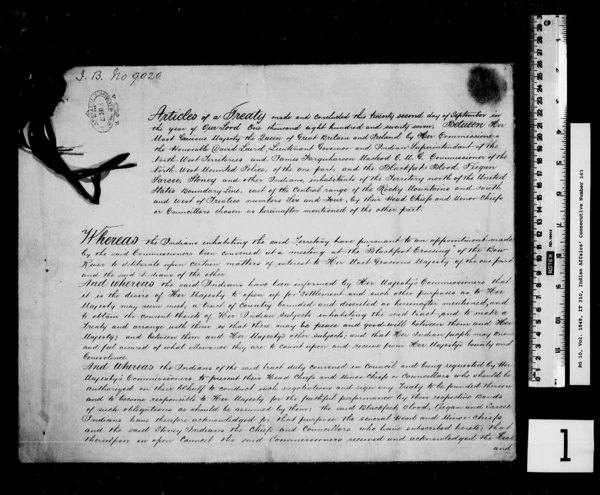 I. B. No 9020
Articles of a Treaty made and concluded this twenty second day of September in
the year of Our Lord One thousand eight hundred and seventy seven, Between Her
Most Gracious Majesty the Queen of Great Britain and Ireland by Her Commissioners
the Honorable David Laird, Lieutenant Governor and Indian Superintendent of the
North West Territories and James Farquharson Macleod C. M. G. Commissioner of the
North-West Mounted Police, of the one part, and the Blackfeet, Blood, Piegan,
Sarcee, Stoney and other Indians, inhabitants of the Territory north of the United
States Boundary Line, east of the Central range of the Rocky Mountains and south
and west of Treaties numbers Six and Four, by their Head Chiefs and Minor Chiefs
or Councillors chosen as hereinafter mentioned of the other part.
Whereas the Indians inhabiting the said Territory have pursuant to an appointment made
by the said Commissioners been convened at a meeting at the "Blackfoot Crossing" of the Bow
River to deliberate upon certain matters of interest to Her Most Gracious Majesty of the one part
and the said Indians of the other
And whereas the said Indians have been informed by Her Majesty's Commissioners that
it is the desire of Her Majesty to open up for settlement and such other purposes as to Her
Majesty may seem meet a tract of Country bounded and described as hereinafter mentioned, and
to obtain the consent thereto of Her Indian Subjects inhabiting the said tract, and to make a
Treaty and arrange with them so that there may be peace and good will between them and Her
Majesty; and between them and Her Majesty's other subjects; and that Her Indian people may know
and feel assured of what allowance they are to count upon and receive from Her Majesty's bounty and
benevolence
And whereas the Indians of the said tract duly convened in Council and being requested by Her
Majesty's Commissioners to present their Head Chiefs and Minor Chiefs or Councillors who should be
authorized on their behalf to conduct such negotiations and sign any Treaty to be founded thereon
and to become responsible to Her Majesty for the faithful performance by their respective bands
of such obligations as should be assumed by them; the said Blackfeet, Blood, Piegan and Sarcee
Indians have therefore acknowledged for that purpose the several Head and Minor Chiefs
and the said Stoney Indians the Chiefs and Councillors who have subscribed hereto; that
thereupon in open Council the said Commissioners received and acknowledged the Head
and
RG 10, Vol. 1848, IT 310, Indian Affairs' Consecutive Number 163
1